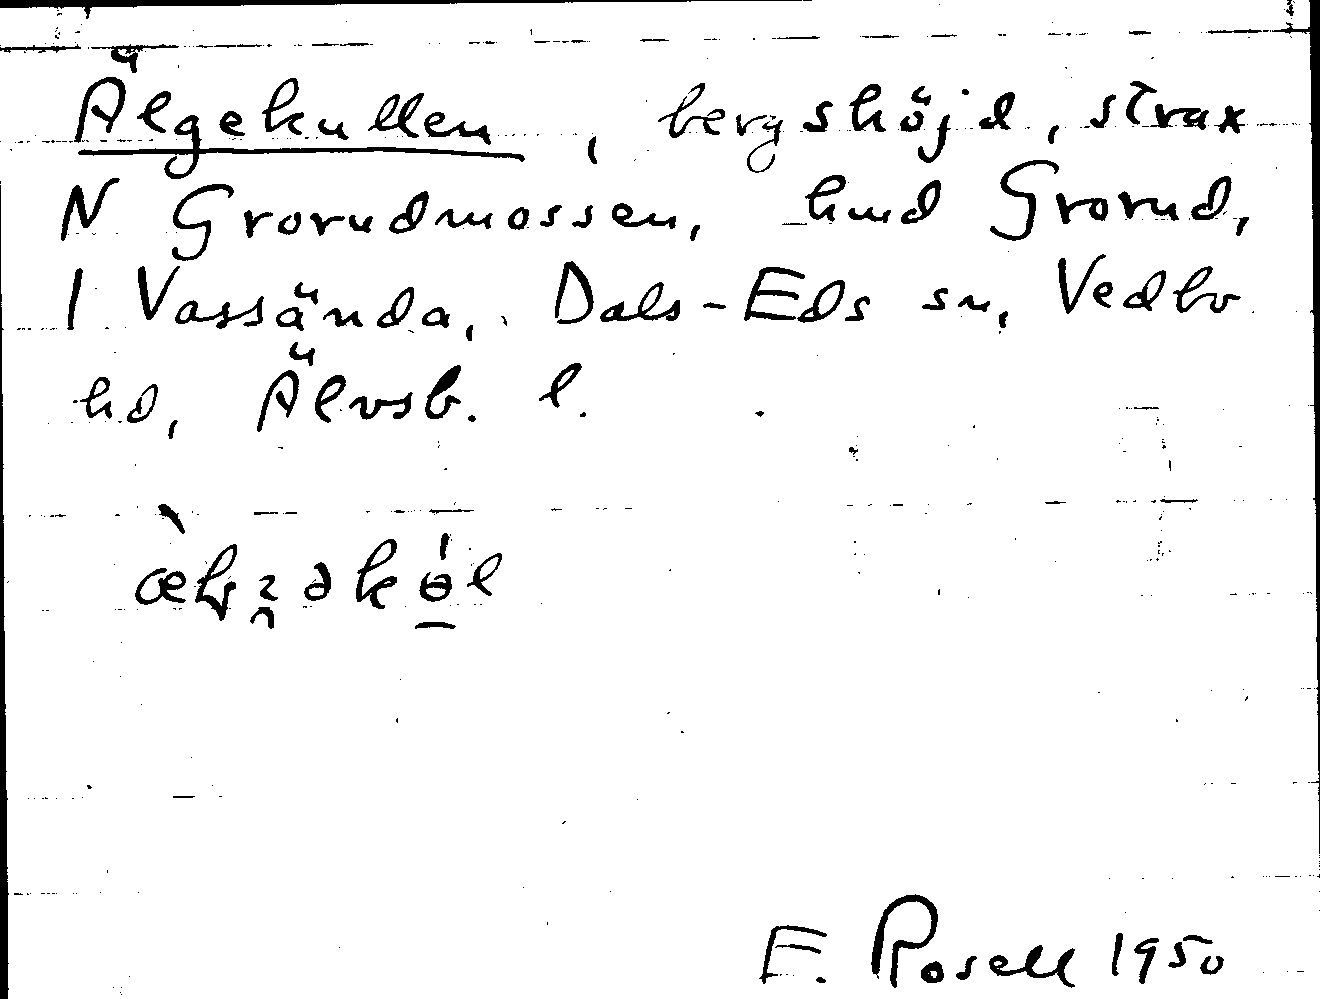 Älgekullen, bergshöjd, strax
N Grorudmossen, hmd Grorud,
1 Vassända, Dals-Eds sn, Vedbo
hd, Älvsb. l.
E. Rosell 1950